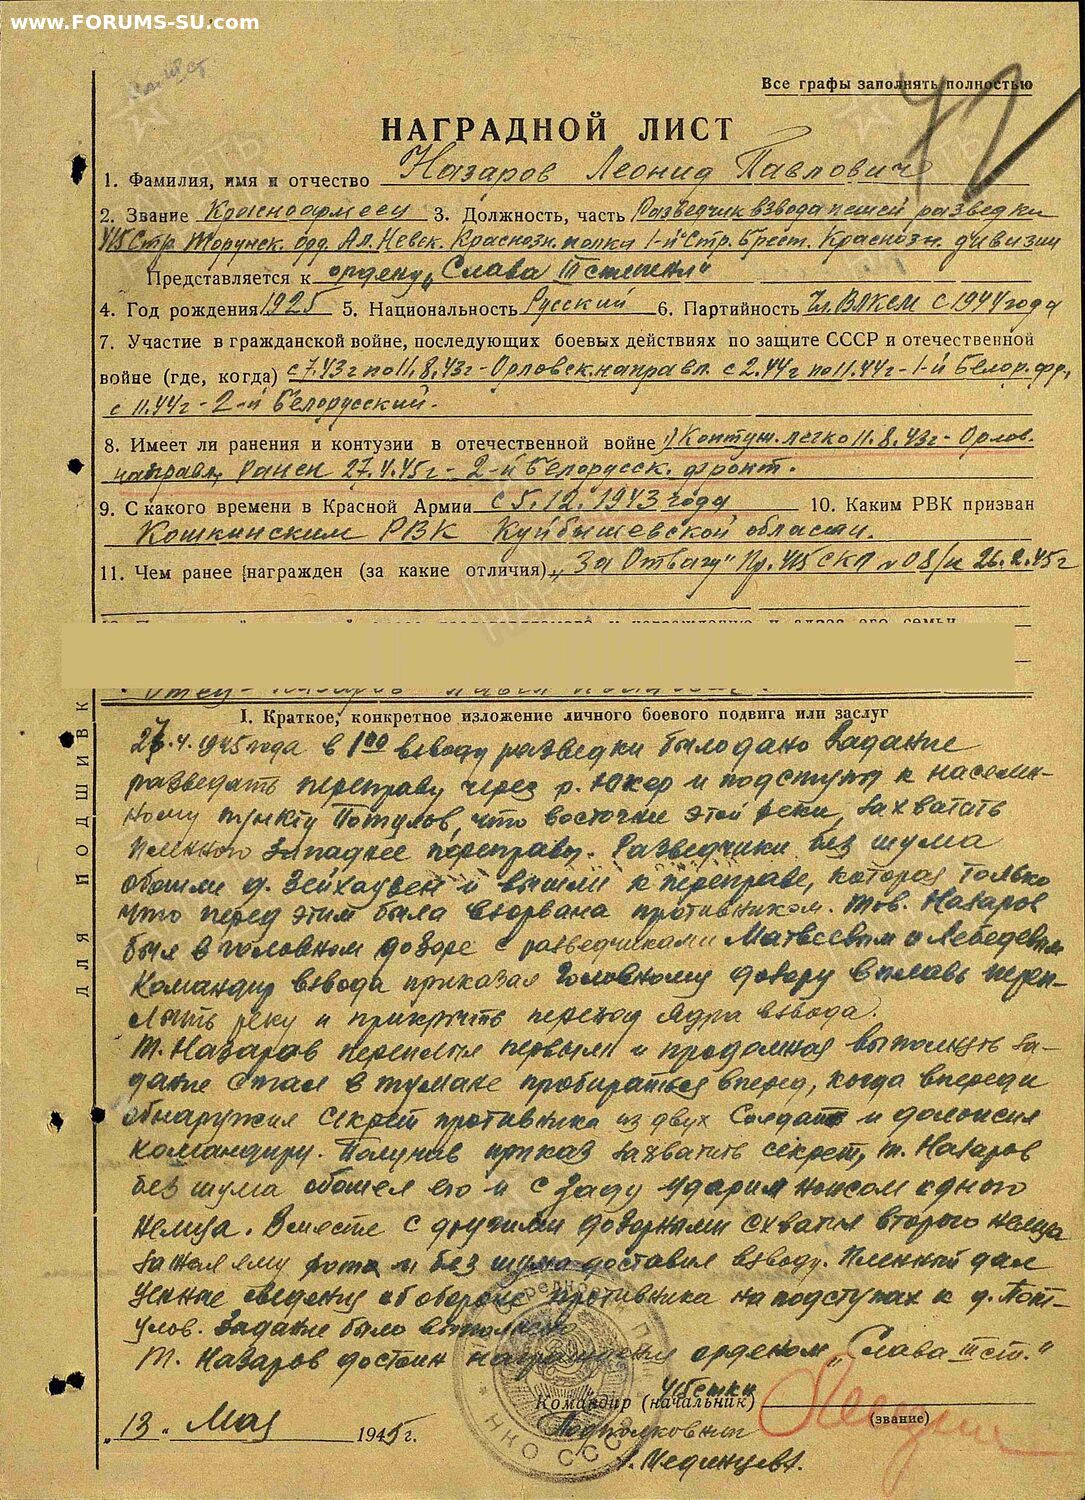 www.FORUMS-SU.com
Все графы заполнять полностью
42
НАГРАДНОЙ ЛИСТ
1. Фамилия, имя и отчество Назаров Леонид Павлович
2. Звание Красноармеец 3. Должность, часть Разведчик взвода пешей разведки
415 Стр. Торунск. орд. Ал. Невск. Краснозн. полка 1-й Стр. Брест. Краснозн. дивизии
Представляется к ордену „Слава III степени"
4. Год рождения 1925 5. Национальность Русский 6. Партийность Чл. ВЛКСМ с 1944 года
7. Участие в гражданской войне, последующих боевых действиях по защите СССР и отечественной
войне (где, когда) с 7.43г по 11.8.43г - Орловск. направл. с 2.44г по 11.44г - 1-й Белор. фр,
с 11.44г - 2-й Белорусский.
8. Имеет ли ранения и контузии в отечественной войне 1) Контуж. легко 11.8.43г - Орлов.
направл, Ранен 27.4.45г - 2-й Белорусск. фронт.
9. С какого времени в Красной Армии с 5.12.1943 года 10. Каким РВК призван
Кошкинским РВК Куйбышевской области.
11. Чем ранее награжден (за какие отличия) „За Отвагу" Пр. 415 СКП № 08/н 26.2.45г
Отец - Назаров Павел
I. Краткое, конкретное изложение личного боевого подвига или заслуг
27.4.1945 года в 1 00 взводу разведки было дано задание
разведать переправу через р. Юкер и подступы к населен-
ному пункту Потулов, что восточнее этой реки, захватать
пленного западнее переправы. Разведчики без шума
обошли д. Зейхаузен и вышли к переправе, которая только
что перед этим была взорвана противником. Тов. Назаров
был в головном дозоре с разведчиками Матвеевым и Лебедевым
Командир взвода приказал головному дозору вплавь переп-
лыть реку и прикрыть переход ядра взвода.
Т. Назаров переплыл первым и продолжая выполнять за-
дание стал в тумане пробираться вперед, когда впереди
обнаружил секрет противника из двух солдат и доложил
командиру. Получив приказ захватить секрет, т. Назаров
без шума обошел его и с заду ударил ножом одного
немца. Вместе с другими дозорными схватил второго немца
зажал ему рот и без шума доставил взводу. Пленный дал
ценные сведения об обороне противника на подступах к д. Пот-
улов. Задание было выполнено
Т. Назаров достоин награждения орденом „Слава III ст."
ДЛЯ ПОДШИВКИ
НКО СССР
Командир (начальник)
(звание)
Подполковник
„13" Мая 1945 г.
/Мединцев/.